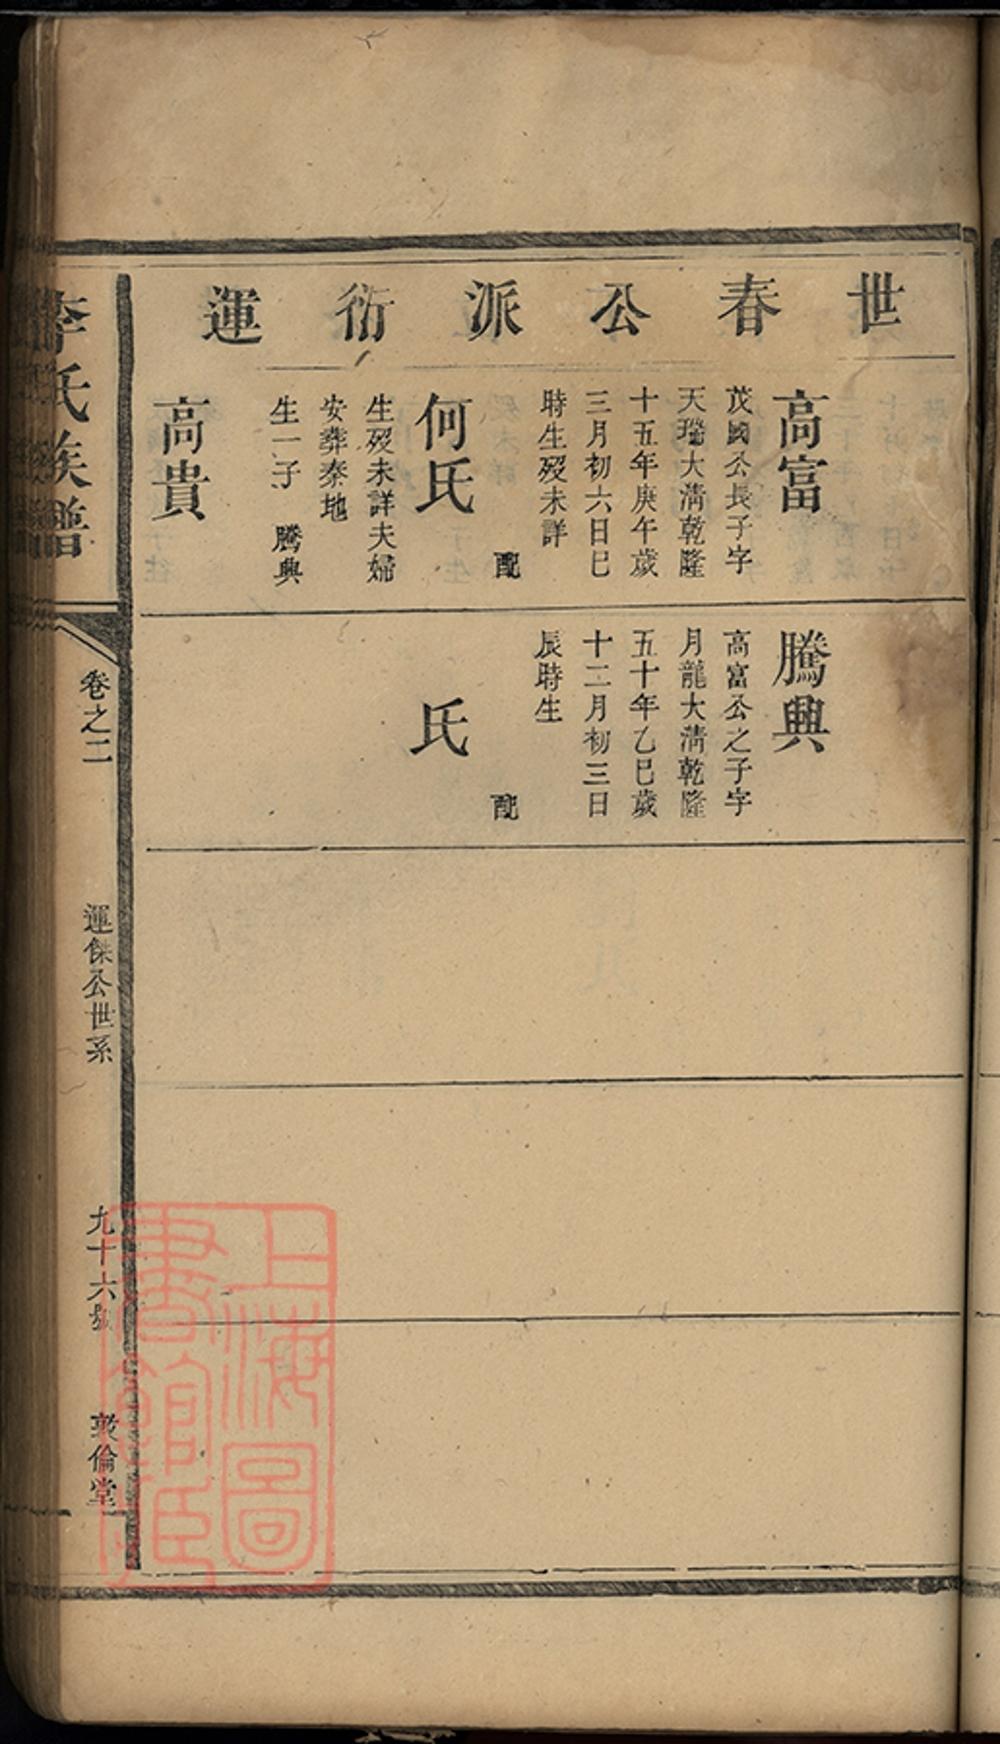 世春公派衍運
高富
茂國公長子字
天瑞大淸乾隆
十五年庚午歲
三月初六日巳
時生歿未詳
配
何氏
生歿未詳夫婦
安葬泰地
生一子 騰興
高貴
騰興
高富公之子字
月龍大淸乾隆
五十年乙巳歲
十二月初三日
辰時生
配
氏
李氏族譜
卷之二
運傑公世系
九十六號
敦倫堂
上海圖
書館藏